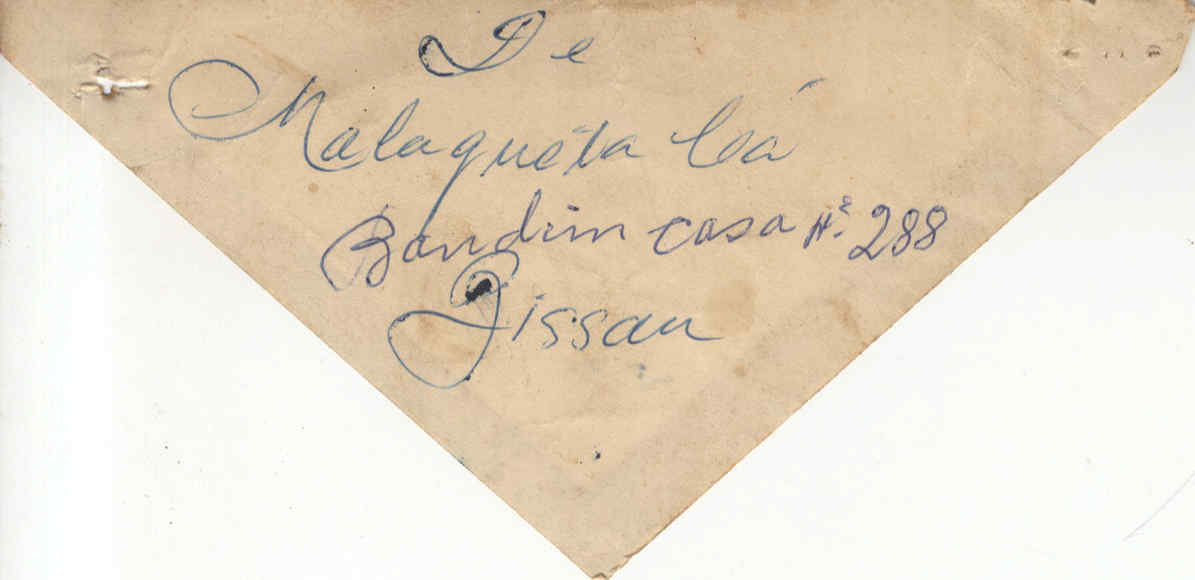 De
Malaquêta Cá
Bandim casa Nº 288
Bissau